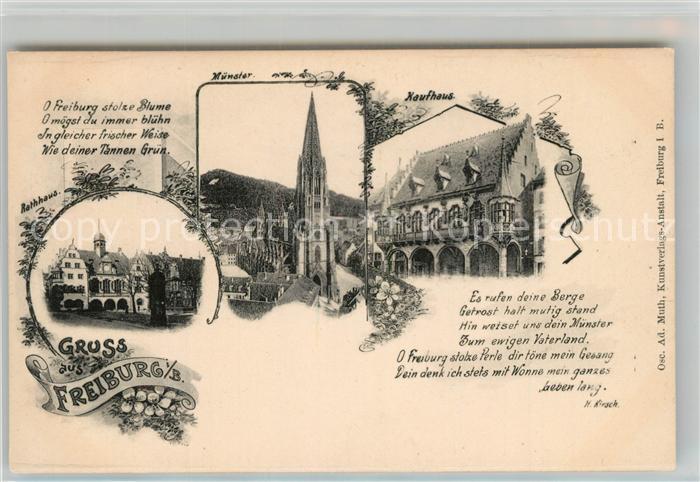 O Freiburg stolze Blume
O mögst du immer blühn
In gleicher frischer Weise
Wie deiner Tannen Grün.
Münster.
Kaufhaus.
Rathhaus.
GRUSS
aus
FREIBURG i/B.
Es rufen deine Berge
Getrost halt mutig stand
Hin weiset uns dein Münster
Zum ewigen Vaterland.
O Freiburg stolze Perle dir töne mein Gesang
Dein denk ich stets mit Wonne mein ganzes
Leben lang.
H. Kirsch.
Osc. Ad. Muth, Kunstverlags-Anstalt, Freiburg i B.
copyright picture Kopierschutz